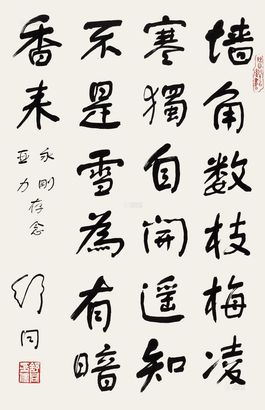 墙角数枝梅凌
寒獨自開遥知
不是雪為有暗
香来
永刚
亚力存念
舒同